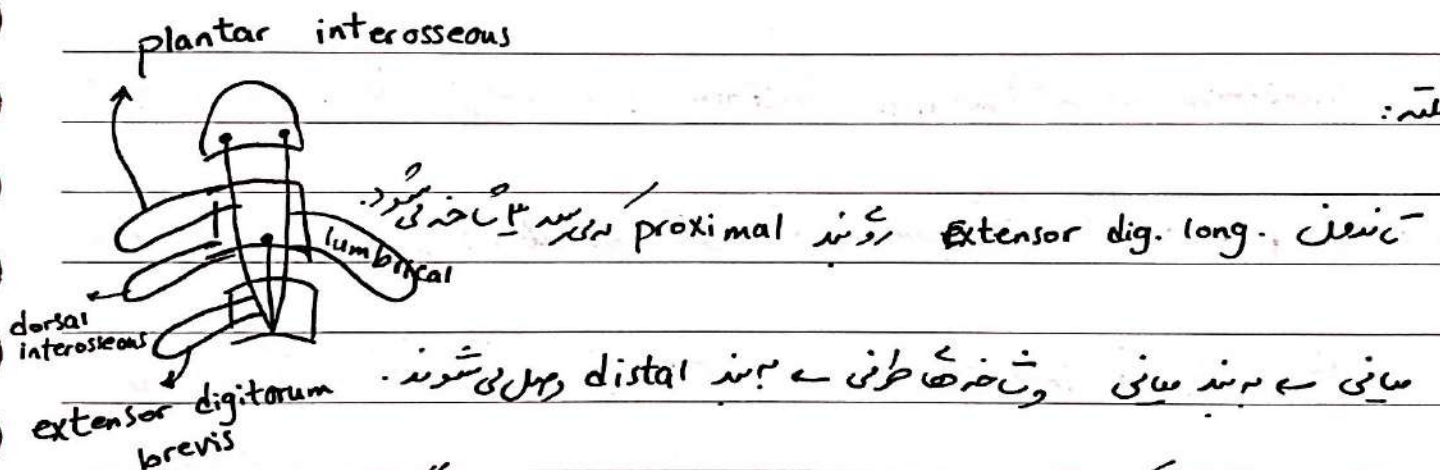 plantar interosseous
نکته:
تاندون Extensor dig. long. روی بند proximal که می‌رسد ۳ شاخه می‌شود.
lumbrical
dorsal
interosseous
میانی ← به بند میانی و شاخه‌های طرفی ← به بند distal وصل می‌شوند.
extensor digitorum
brevis